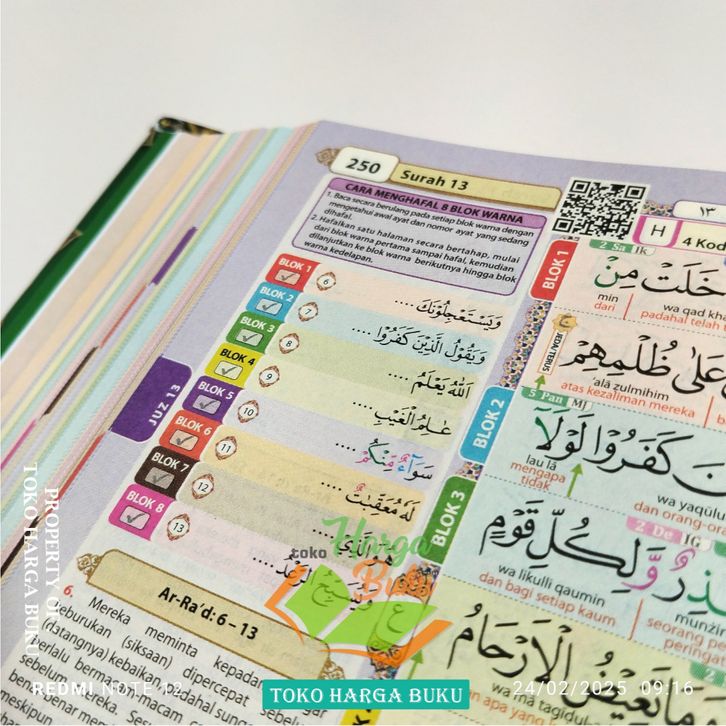 250
Surah 13
CARA MENGHAFAL 8 BLOK WARNA
1. Baca secara berulang pada setiap blok warna dengan
mengetahui awal ayat dan nomor ayat yang sedang
dihafal.
2. Hafalkan satu halaman secara bertahap, mulai
dari blok warna pertama sampai hafal, kemudian
dilanjutkan ke blok warna berikutnya hingga blok
warna kedelapan.
BLOK 1
6
وَيَسْتَعْجِلُوْنَكَ ....
BLOK 2
7
وَيَقُوْلُ الَّذِيْنَ كَفَرُوْا ....
BLOK 3
8
اَللّٰهُ يَعْلَمُ ....
BLOK 4
9
عٰلِمُ الْغَيْبِ ....
BLOK 5
10
سَوَاۤءٌ مِّنْكُمْ ....
BLOK 6
11
لَهٗ مُعَقِّبٰتٌ ....
BLOK 7
12
BLOK 8
13
JUZ 13
Ar-Ra'd: 6 – 13
6. Mereka meminta kepada
(datangnya) kebaikan, padahal sungguh
١٣
H
4 Kod
BLOK 1
2 Sa Ik
خَلَتْ مِنْ
min
dari
wa qad kha
padahal telah
عَلٰى ظُلْمِهِمْ
'alā ẓulmihim
atas kezaliman mereka
BLOK 2
5 Pan Mj
كَفَرُوْا لَوْلَآ
lau lā
mengapa
tidak
wa yaqūlu
dan orang-oran
BLOK 3
2 De IG
وَّلِكُلِّ قَوْمٍ
wa likulli qaumin
dan bagi setiap kaum
munżi
seorang pe
peringat
الْاَرْحَامُ
toko Harga Buku
PROPERTY OF
TOKO HARGA BUKU
REDMI NOTE 12
TOKO HARGA BUKU
24/02/2025 09:16